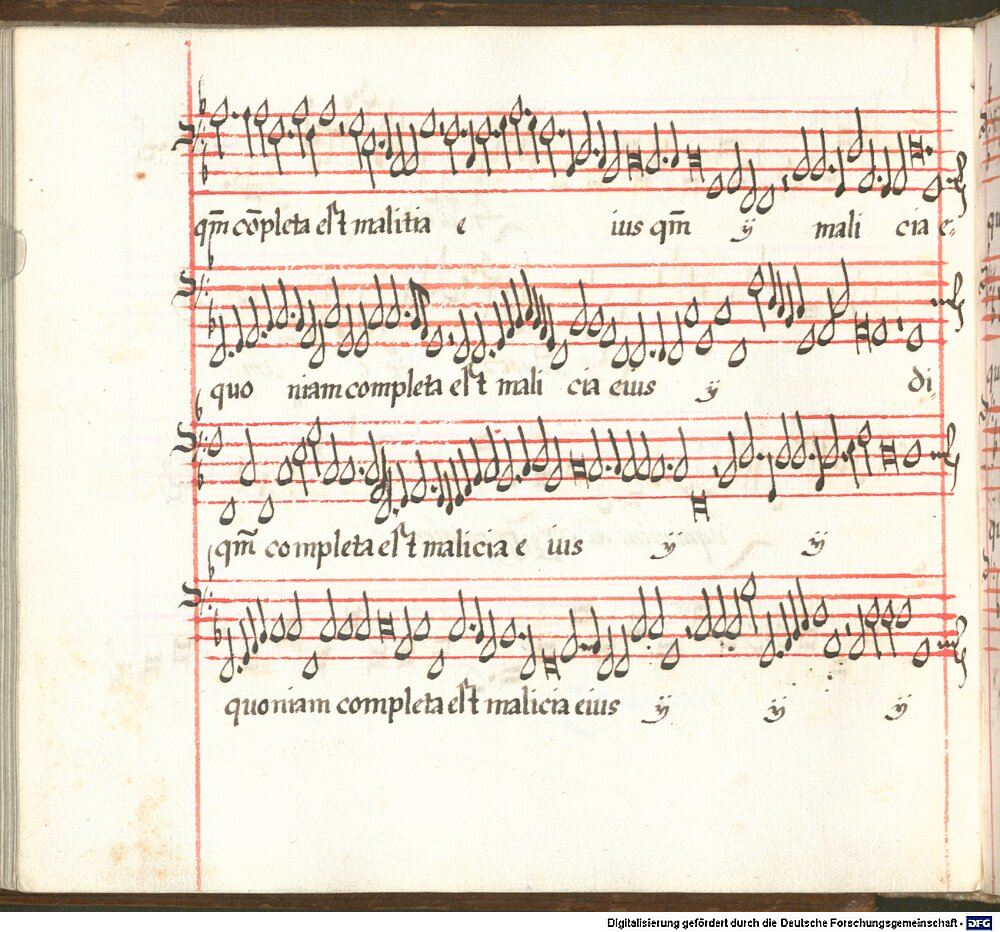 qm̄ cōpleta est malitia e ius qm̄ ÿ mali cia e-
quo niam completa est mali cia eius ÿ di-
qm̄ completa est malicia e ius ÿ ÿ
quoniam completa est malicia eius ÿ ÿ ÿ
Digitalisierung gefördert durch die Deutsche Forschungsgemeinschaft - DFG